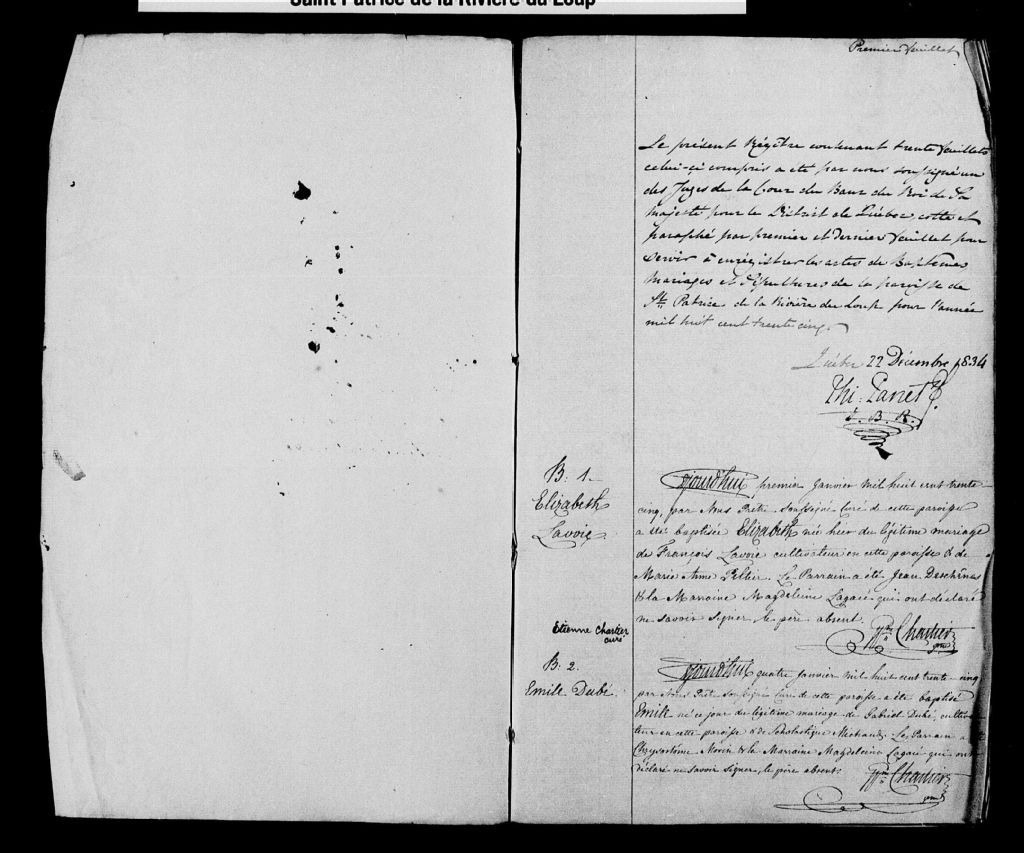 Saint Patrice de la Rivière du Loup
Premier feuillet
Le présent Régître contenant trente feuillets
celui-ci compris a été par nous soussigné un
des Juges de la Cour du Banc du Roi de Sa
majesté pour le District de Québec cotté et
paraphé par premier et dernier feuillet pour
servir à enrégistrer les actes de Baptêmes
Mariages et Sépultures de la paroisse de
St. Patrice de la Rivière du Loup pour l'année
mil huit cent trente cinq.
Québec 22 Décembre 1834
Thi: Panet
J. B. R.
B. 1.
Elizabeth
Lavoie
Ajourd'hui premier Janvier Mil huit cent trente-
cinq, par Nous Prêtre Soussigné Curé de cette paroisse
a été baptisée Elizabeth née hier du légitime mariage
de François Lavoie cultivateur en cette paroisse & de
Marie Anne Peltier. Le Parrain a été Jean Deschênes
& la Marraine Magdeleine Lagacé qui ont déclaré
ne savoir signer, le père absent.
Chartier
ptre
Etienne Chartier
curé
B. 2.
Emill Dubé.
Ajourd'hui quatre Janvier Mil huit cent trente-cinq
par Nous Prêtre Soussigné Curé de cette paroisse a été baptisé
Emill né ce jour du légitime mariage de Gabriel Dubé, cultiva-
teur en cette paroisse & de Scholastique Michaud. Le Parrain a
Chrysostôme Morin & la Marraine Magdeleine Lagacé qui ont
déclaré ne savoir signer, le père absent.
Chartier
ptre